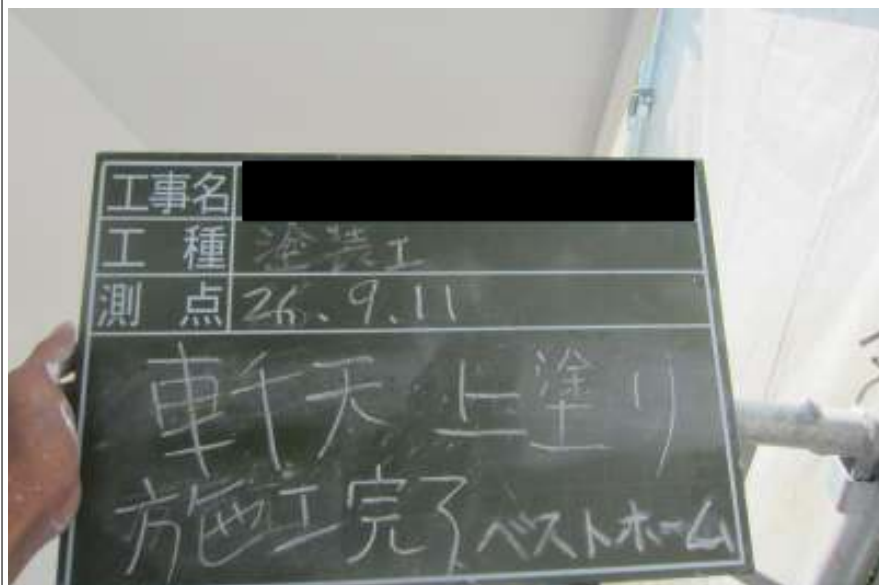 工事名
工種 塗装工
測点 26.9.11
軒天 上塗り
施工完了 ベストホーム